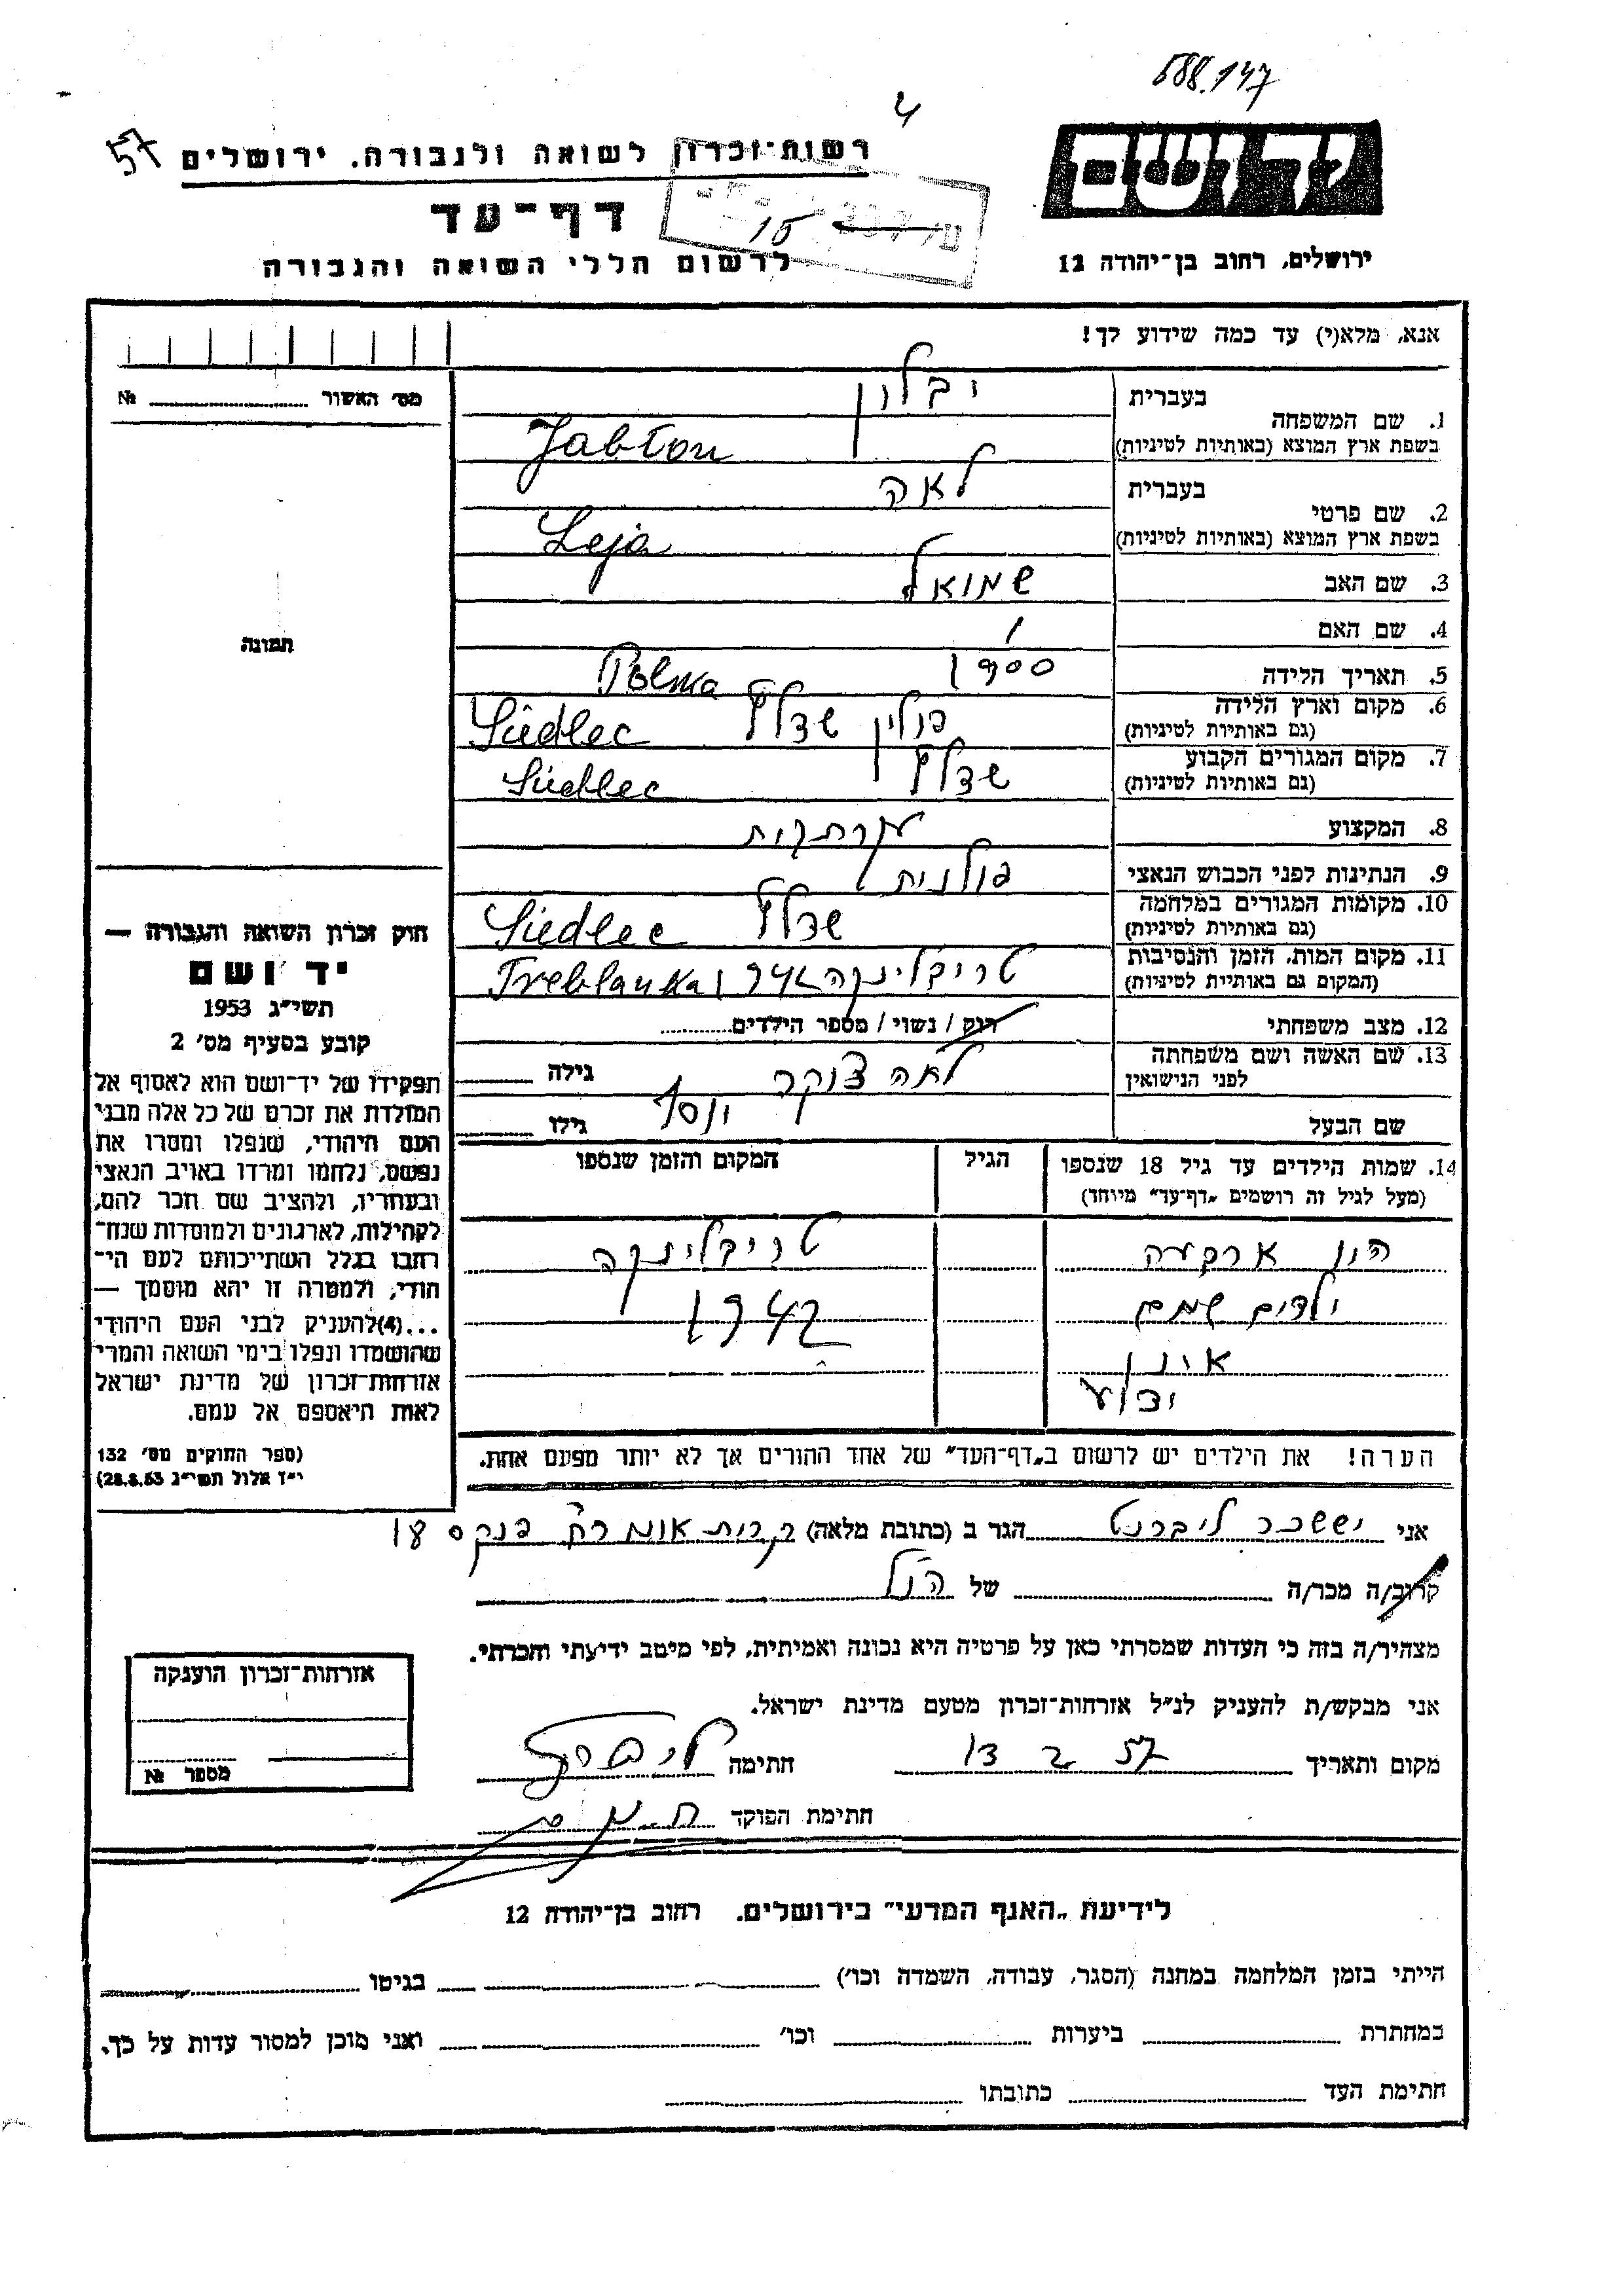 688.147
4
57
רשות־זכרון לשואה ולגבורה. ירושלים
יד ושם
דף־עד
15
לרשום חללי השואה והגבורה
ירושלים, רחוב בן־יהודה 12
אנא, מלא(י) עד כמה שידוע לך!
מס׳ האשור № 
תמונה
1. שם המשפחה
בעברית יבלון
בשפת ארץ המוצא (באותיות לטיניות) Jabłon
2. שם פרטי
בעברית לאה
בשפת ארץ המוצא (באותיות לטיניות) Leja
3. שם האב שמואל
4. שם האם /
5. תאריך הלידה 1900
6. מקום וארץ הלידה פולין שדלץ Polska
(גם באותיות לטיניות) Siedlec
7. מקום המגורים הקבוע שדלץ
(גם באותיות לטיניות) Siedlec
8. המקצוע
9. הנתינות לפני הכבוש הנאצי פולנית
10. מקומות המגורים במלחמה שדלץ
(גם באותיות לטיניות) Siedlec
11. מקום המות, הזמן והנסיבות טריבלינקה 1942
(המקום גם באותיית לטיניות) Treblanka
12. מצב משפחתי רוק / נשוי / מספר הילדים
13. שם האשה ושם משפחתה לאה צוקר גילה
לפני הנישואין
שם הבעל יוסף גילו
14. שמות הילדים עד גיל 18 שנספו
(מעל לגיל זה רושמים „דף־עד״ מיוחד)
הגיל
המקום והזמן שנספו
היו ארבעה טריבלינקה
ילדים שמם 1942
אינו
ידוע
הערה! את הילדים יש לרשום ב„דף־העד״ של אחד ההורים אך לא יותר מפעם אחת.
חוק זכרון השואה והגבורה —
יד ושם
תשי״ג 1953
קובע בסעיף מס׳ 2
תפקידו של יד־ושם הוא לאסוף אל
המולדת את זכרם של כל אלה מבני
העם היהודי, שנפלו ומסרו את
נפשם, נלחמו ומרדו באויב הנאצי
ובעוזריו, ולהציב שם וזכר להם,
לקהילות, לארגונים ולמוסדות שנח־
רחבו בגלל השתייכותם לעם הי־
הודי, ולמטרה זו יהא מוסמך —
...(4)להעניק לבני העם היהודי
שהושמדו ונפלו בימי השואה והמרי
אזרחות־זכרון של מדינת ישראל
לאות היאספם אל עמם.
(ספר החוקים מס׳ 132
י״ד אלול תשי״ג 28.8.53)
אני יששכר ליברנט הגר ב (כתובת מלאה) קרית אונו רח׳ פנקס 18
קרוב/ה מכר/ה של הנ״ל
מצהיר/ה בזה כי העדות שמסרתי כאן על פרטיה היא נכונה ואמיתית, לפי מיטב ידיעתי והכרתי.
אני מבקש/ת להעניק לנ״ל אזרחות־זכרון מטעם מדינת ישראל.
מקום ותאריך 13 2 57 חתימה
חתימת הפוקד
אזרחות־זכרון הוענקה
מספר №
לידיעת „האגף המדעי״ בירושלים. רחוב בן־יהודה 12
הייתי בזמן המלחמה במחנה (הסגר, עבודה, השמדה וכו׳) בגיטו
במחתרת ביערות וכו׳ ואני מוכן למסור עדות על כך.
חתימת העד כתובתו